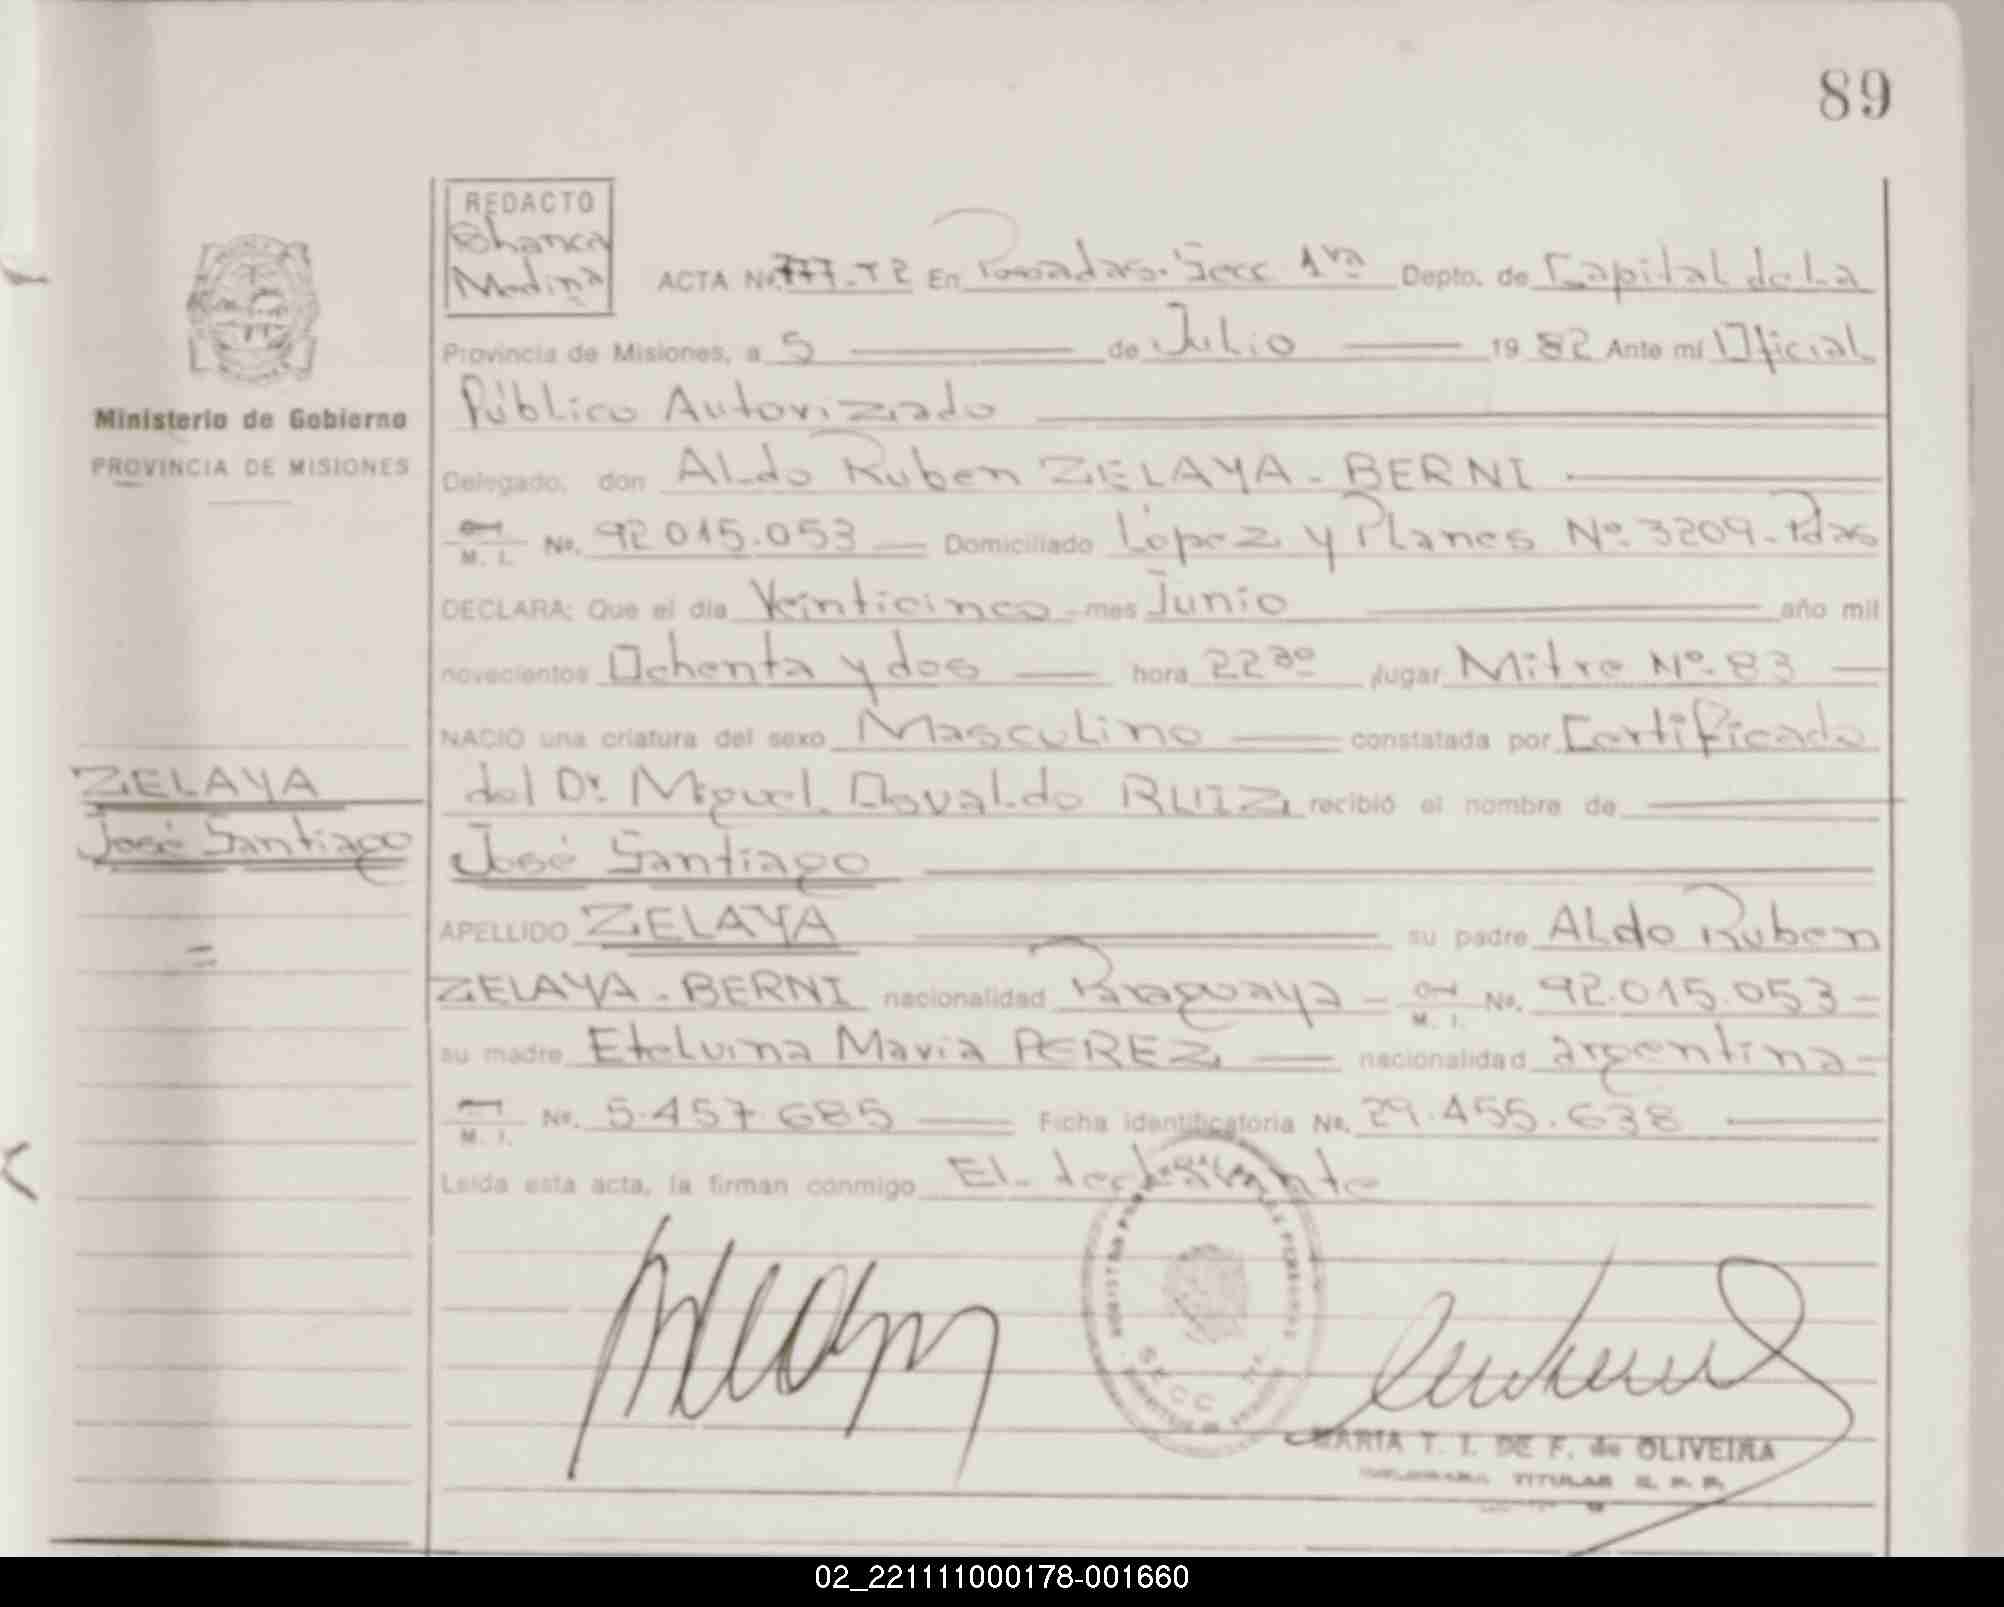 89
REDACTO
Medina
ACTA No. 777-T2 En Posadas. Secc 1ra Depto. de Capital de La
Provincia de Misiones, a 5 de Julio 1982 Ante mí Oficial
Público Autorizado
Ministerio de Gobierno
PROVINCIA DE MISIONES
Delegado; don Aldo Ruben ZELAYA - BERNI
M. I. No. 92.015.053 Domiciliado López y Planes Nº 3209 - Pdas
DECLARA; Que el día Veinticinco mes Junio año mil
novecientos Ochenta y dos hora 22 30 lugar Mitre Nº 83
NACIO una criatura del sexo Masculino constatada por Certificado
del Dr. Miguel Osvaldo RUIZ recibió el nombre de
José Santiago
ZELAYA
José Santiago
APELLIDO ZELAYA su padre Aldo Ruben
ZELAYA - BERNI nacionalidad Paraguaya M. I. No. 92.015.053
su madre Etelvina Maria PEREZ nacionalidad argentina
M. I. No. 5.457.685 Ficha identificatoria No. 29.455.638
Leída esta acta, la firman conmigo El declarante
SECC 1ra
MARIA T. I. DE F. de OLIVEIRA
TITULAR
02_221111000178-001660